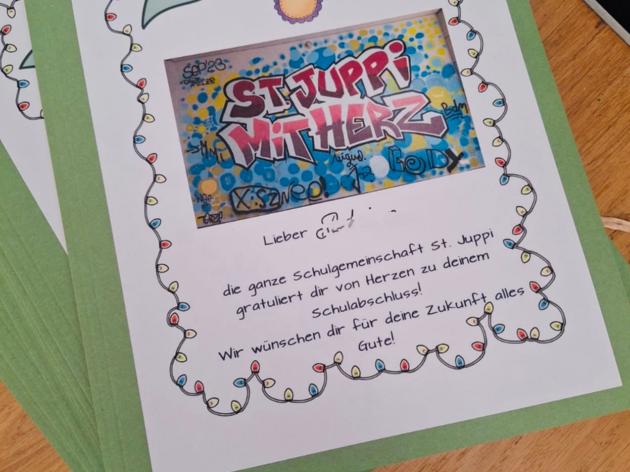 Sep'23
ST. JUPPi
MiT HERZ
Lieber
die ganze Schulgemeinschaft St. Juppi
gratuliert dir von Herzen zu deinem
Schulabschluss!
Wir wünschen dir für deine Zukunft alles
Gute!